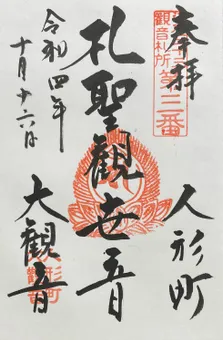 奉拝
観音札所
第三番
人形町
札聖観世音
大観音
令和四年
十月十六日